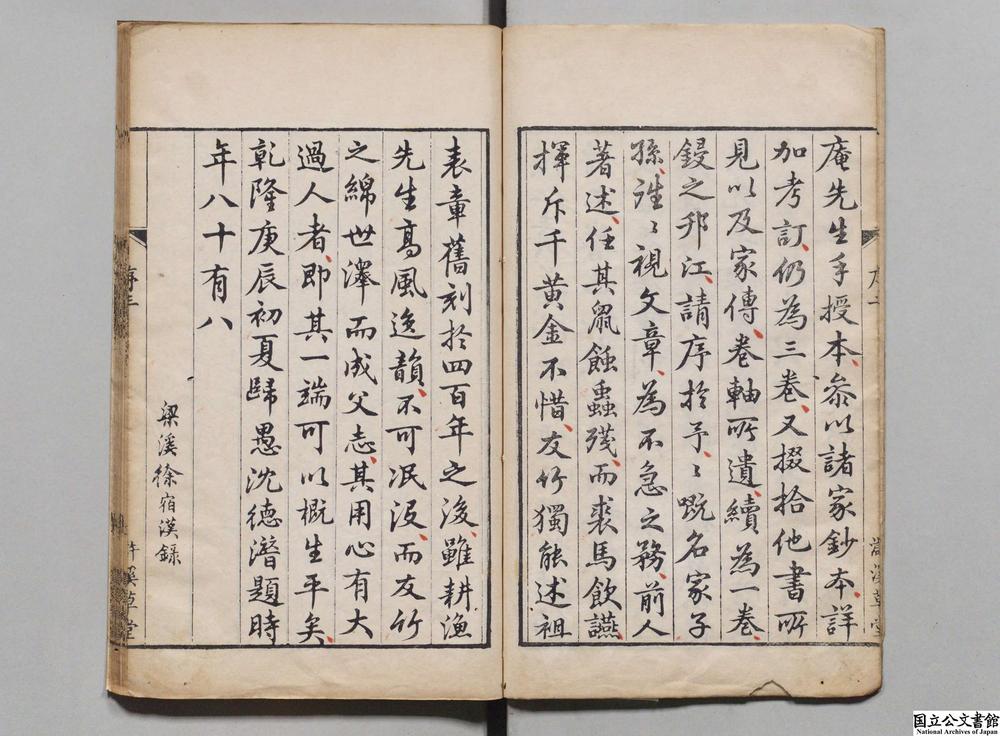 庵先生手授本、叅以諸家鈔本、詳
加考訂、仍為三卷、又掇拾他書所
見以及家傳、卷軸所遺、續為一卷、
鋟之邗江、請序於予、〻嘅名家子
孫、往〻視文章、為不急之務、前人
著述、任其鼠蝕蟲殘、而裘馬飲讌、
揮斥千黄金不惜、友竹獨能述祖
表章舊刻於四百年之後、雖耕漁
先生髙風逸韻、不可泯沒、而友竹
之綿世澤而成父志、其用心有大
過人者、即其一端可以概生平矣、
乾隆庚辰初夏歸愚沈德潛題時
年八十有八
梁溪徐宿漢録
序三
溪草堂
国立公文書館
National Archives of Japan